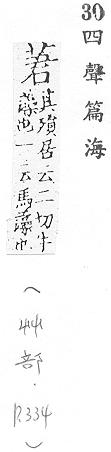 30 四聲篇海
莙 其殞居云二切牛
藻也一云馬藻也
(艸部·P.334)